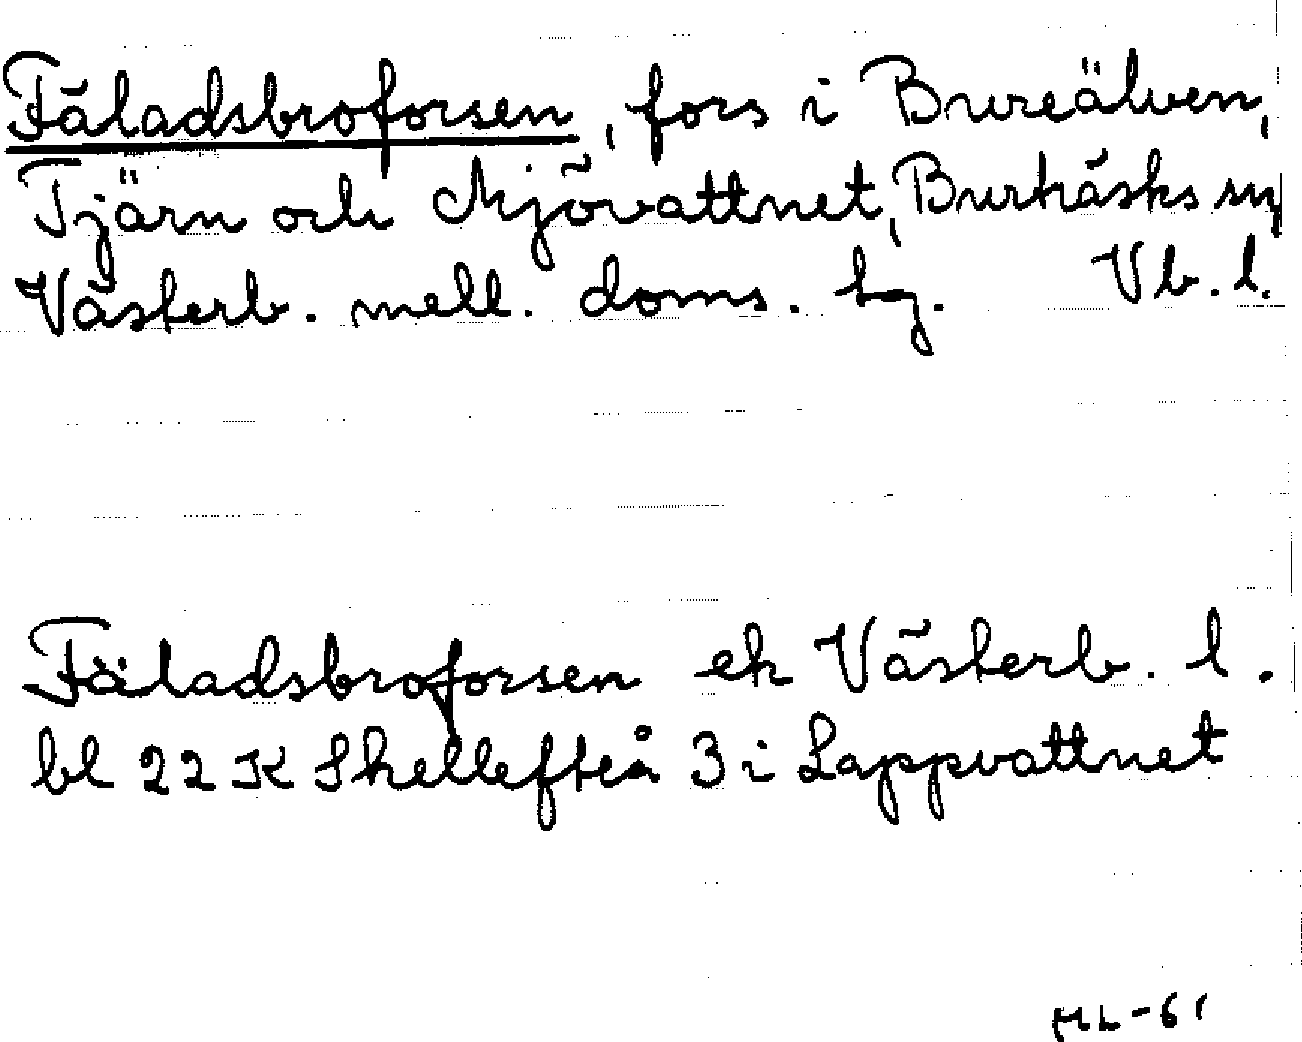 Fäladsbroforsen, fors i Bureälven,
Tjärn och Mjövattnet, Burträsks sn
Västerb. mell. doms. hg. Vb. l.
Fäladsbroforsen ek Västerb. l.
bl 22 K Skellefteå 3 i Lappvattnet
ML-61